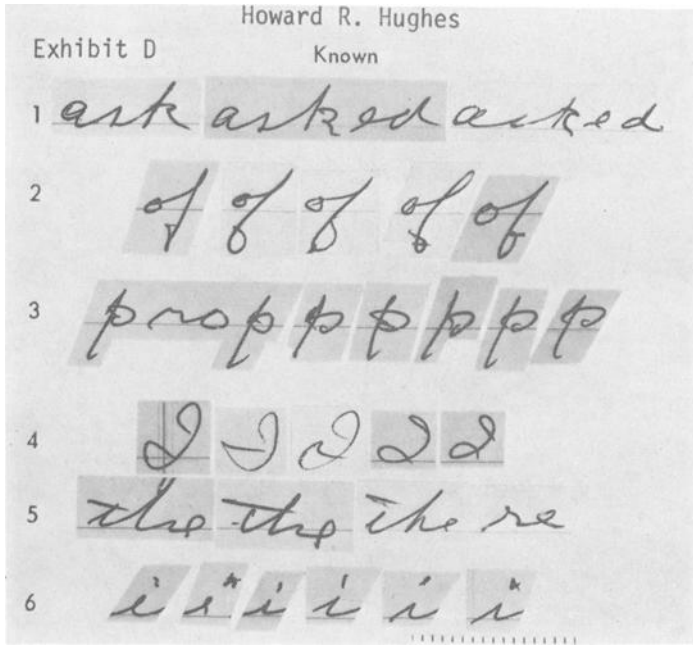 Howard R. Hughes
Exhibit D Known
1 ask asked asked
2 of of of of of
3 prop p p p p p
4 I I I I I
5 the the the re
6 i i i i i i